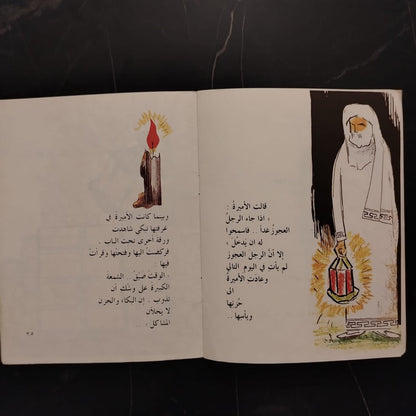 قالت الأميرة :
« اذا جاء الرجل
العجوز غداً .. فاسمحوا
له ان يدخل »
إلا أن الرجل العجوز
لم يأت في اليوم التالي
وعادت الأميرة
الى
حزنها
ويأسها ..
وبينما كانت الأميرة في
غرفتها تبكي شاهدت
ورقة اخرى تحت الباب .
فركضت اليها وفتحتها وقرأت
فيها
« الوقت ضيق . الشمعة
الكبيرة على وشك أن
تذوب . إن البكاء والحزن
لا يحلان
المشاكل »